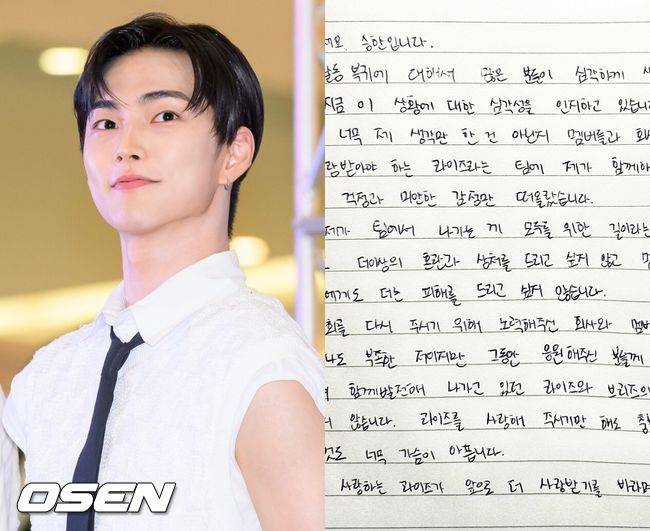 승한입니다.
활동 복귀에 대해서 많은 분들이 심각하게
지금 이 상황에 대한 심각성을 인지하고 있습니다
너무 제 생각만 한 건 아닌지 멤버들과
받아야 하는 라이즈라는 팀에 제가 함께하
걱정과 미안한 감정만 떠올랐습니다.
제가 팀에서 나가는 게 모두를 위한 길이라는
더이상의 혼란과 상처를 드리고 싶지 않고
에게도 더는 피해를 드리고 싶지 않습니다.
회를 다시 주시기 위해 노력해주신 회사와 멤버
나도 부족한 저이지만 그동안 응원해주신 분들께
함께 발전해 나가고 있던 라이즈와 브리즈의
않습니다. 라이즈를 사랑해 주시기만 해도
것도 너무 가슴이 아픕니다.
사랑하는 라이즈가 앞으로 더 사랑받기를 바라며
OSEN